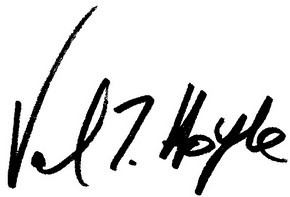 Val T. Hoyle